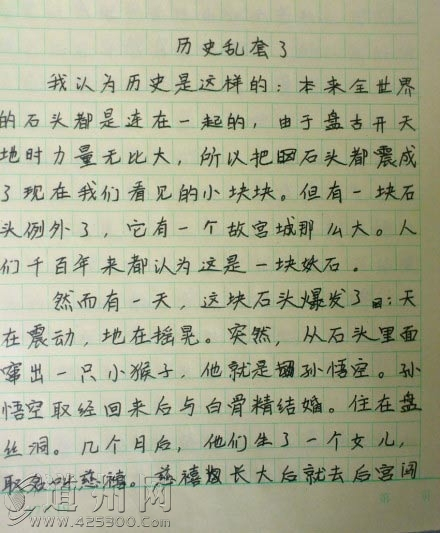 历史乱套了
我认为历史是这样的：本来全世界
的石头都是连在一起的，由于盘古开天
地时力量无比大，所以把石头都震成
了现在我们看见的小块块。但有一块石
头例外了，它有一个故宫城那么大。人
们千百年来都认为这是一块妖石。
然而有一天，这块石头爆发了：天
在震动，地在摇晃。突然，从石头里面
窜出一只小猴子，他就是孙悟空。孙
悟空取经回来后与白骨精结婚。住在盘
丝洞。几个月后，他们生了一个女儿，
取名叫慈禧。慈禧长大后就去后宫闯
道州网
www.425300.Com
第